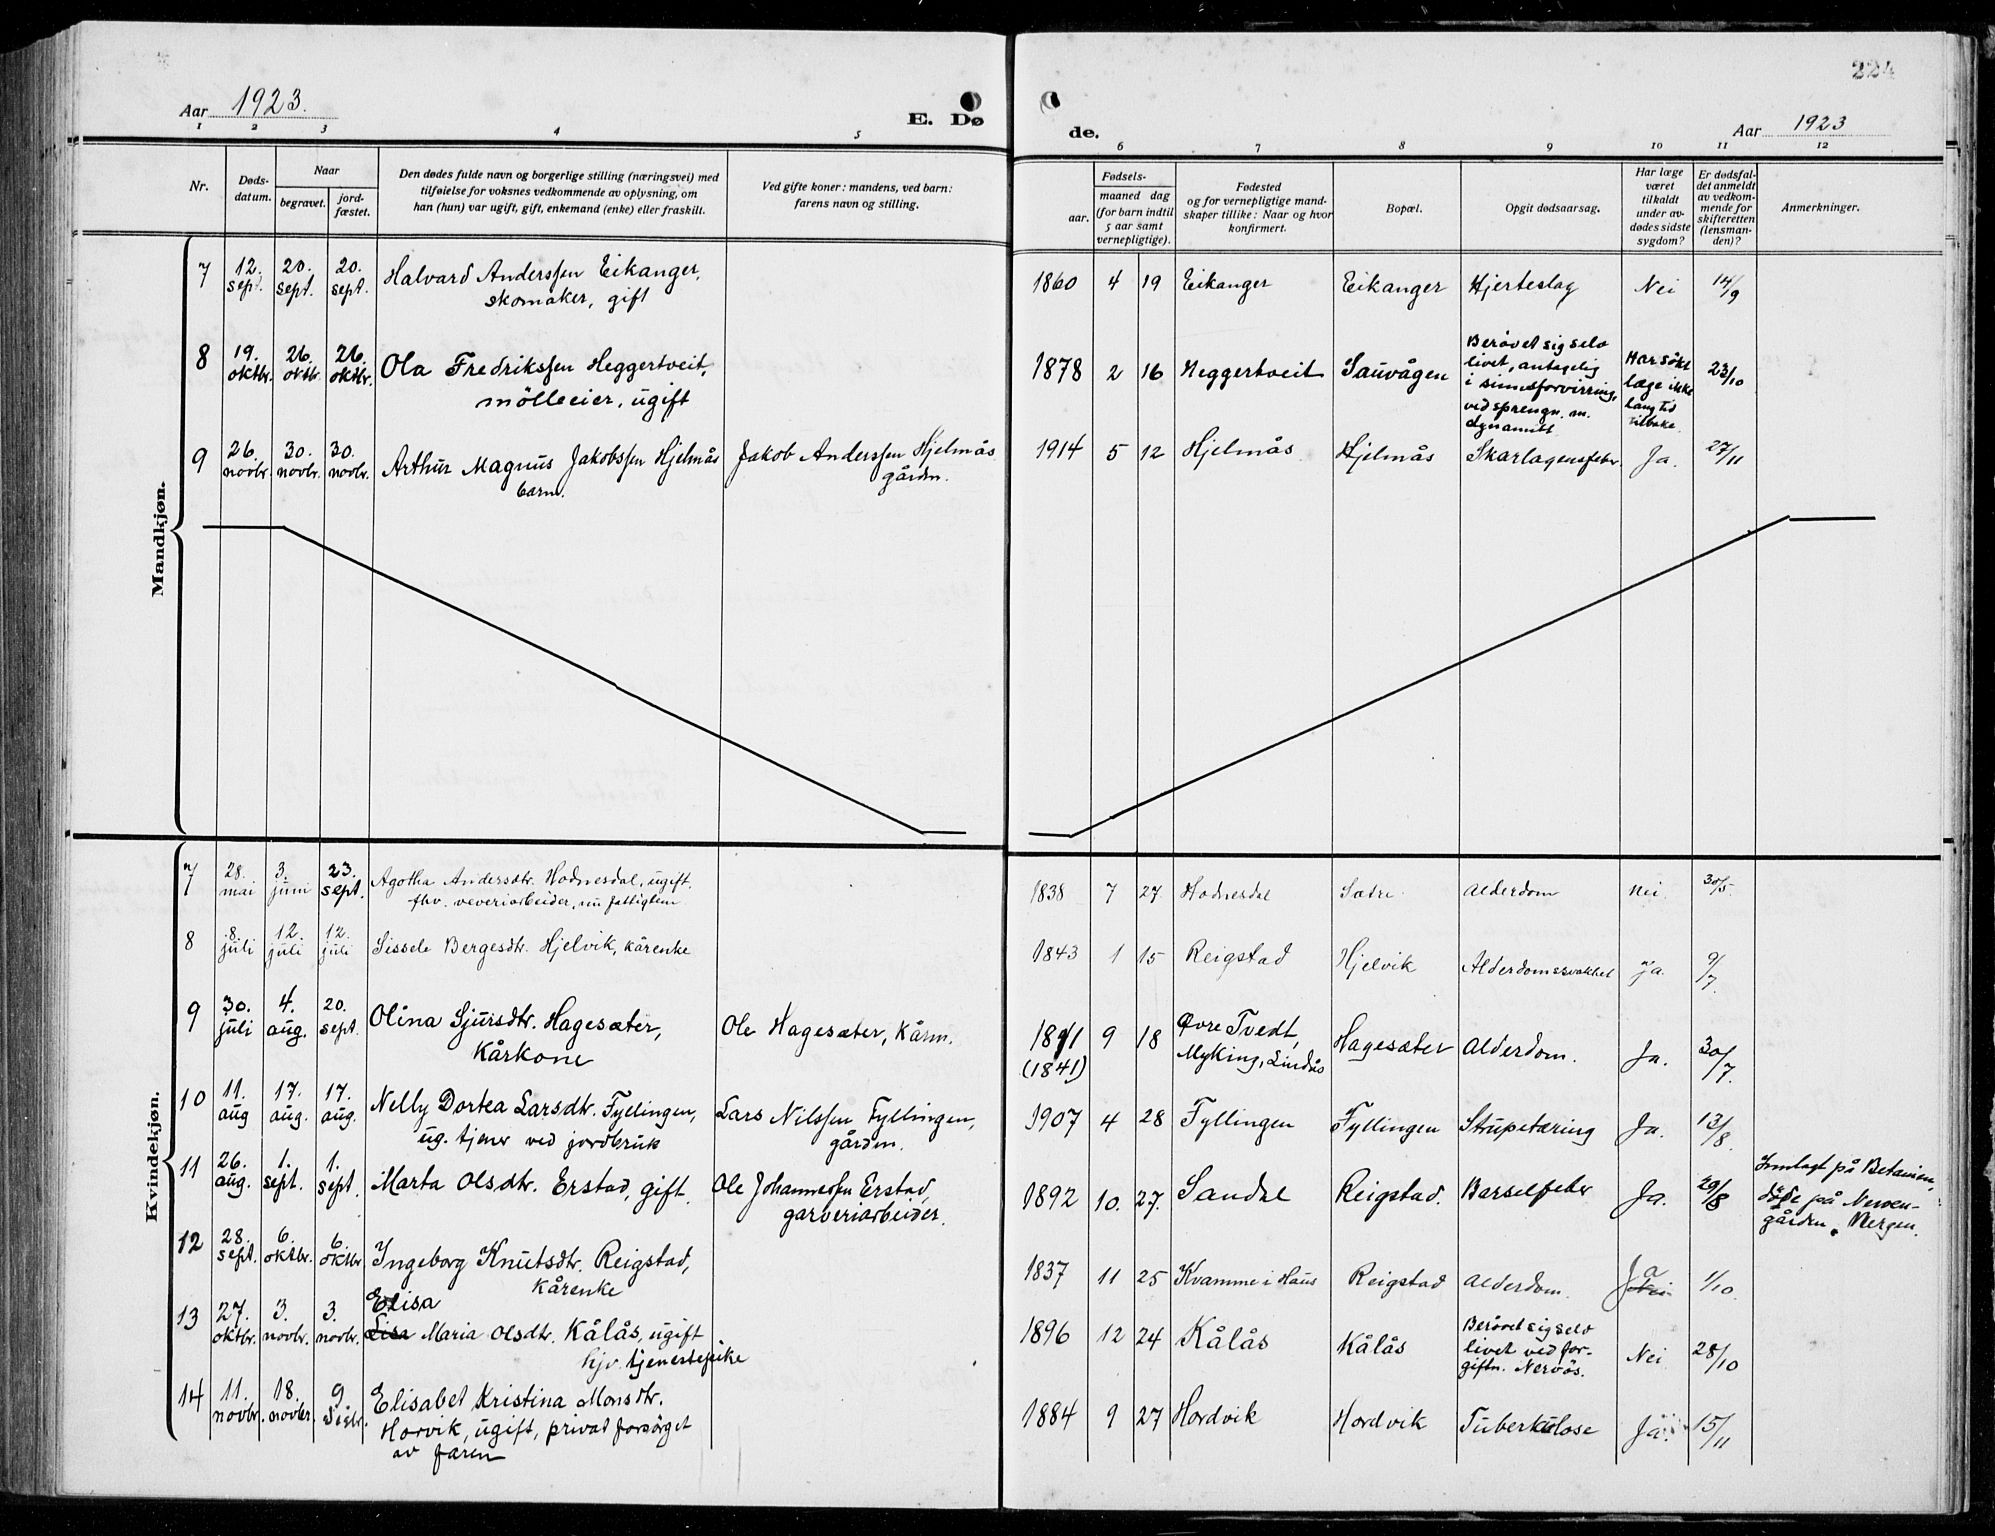 224
Aar 1923.
E. Dø
de.
Aar 1923
1 2 3 4 5 6 7 8 9 10 11 12
Nr.
Døds-
datum.
Naar
begravet.
jord-
fæstet.
Den dødes fulde navn og borgerlige stilling (næringsvei) med
tilføielse for voksnes vedkommende av oplysning, om
han (hun) var ugift, gift, enkemand (enke) eller fraskilt.
Ved gifte koner: mandens, ved barn:
farens navn og stilling.
Fødsels-
aar.
maaned dag
(for barn indtil
5 aar samt
vernepligtige).
Fødested
og for vernepligtige mand-
skaper tillike: Naar og hvor
konfirmert.
Bopæl.
Opgit dødsaarsag.
Har læge
været
tilkaldt
under av-
dødes sidste
sygdom?
Er dødsfal-
det anmeldt
av vedkom-
mende for
skifteretten
(lensman-
den)?
Anmerkninger.
Mandkjøn.
7 12. sept. 20. sept. 20. sept. Halvard Anderssen Eikanger,
skomaker, gift
1860 4 19 Eikanger Eikanger Hjerteslag Nei 14/9
8 19. oktbr. 26. oktbr 26. oktbr. Ola Fredrikssen Heggertveit,
mölleeier, ugift
1878 2 16 Heggertveit Sauvågen
Berövet sig selv
livet, antagelig
i sinnsforvirring,
ved sprengn. m.
dynamitt
Har sökt
læge ikke
lang tid
tilbake.
23/10
9 26. novbr. 30. novbr. 30. novbr. Arthur Magnus Jakobssen Hjelmås
barn.
Jakob Anderssen Hjelmås
gårdm.
1914 5 12 Hjelmås Hjelmås Skarlagensfeber Ja. 27/11
Kvindekjøn.
7 28. mai 3. juni 23. sept. Agotha Andersdtr. Hodnesdal, ugift.
fhv. veveriarbeider, nu fattiglem
1838 7 27 Hodnesdal Sætre Alderdom Nei 30/5.
8 8. juli 12. juli 12. juli Sissele Bergesdtr. Hjelvik, kårenke
1843 1 15 Reigstad Hjelvik Alderdomssvakhet Ja. 9/7.
9 30. juli 4. aug. 20. sept. Olina Sjursdtr. Hagesæter,
Kårkone
Ole Hagesæter, Kårm.
1841
(1841)
9 18 Øvre Tvedt,
Myking, Lindås
Hagesæter Alderdom. Ja. 30/7.
10 11. aug 17. aug. 17. aug. Nelly Dortea Larsdtr. Fyllingen,
ug. tjener ved jordbruk
Lars Nilssen Fyllingen,
gårdm.
1907 4 28 Fyllingen Fyllingen Strupetæring Ja. 13/8.
11 26. aug. 1. sept. 1. sept. Marta Olsdtr. Erstad, gift.
Ole Johannessen Erstad,
garveriarbeider.
1892 10. 27. Sandal Reigstad. Barselfeber Ja. 29/8
Innlagt på Betanien,
döde på Neven-
gården, Bergen.
12 28. sept. 6. oktbr. 6. oktbr Ingeborg Knutsdtr. Reigstad,
Kårenke
1837 11 25 Kvamme i Haus Reigstad Alderdom. Ja Nei 1/10.
13 27. oktbr. 3. novbr. 3. novbr. Elisa
Lisa Maria Olsdtr. Kålås, ugift
hjv. tjenestepike
1896 12 24 Kålås Kålås
Berövet sig selv
livet ved for-
giftn. Nervös.
Nei 28/10
14 11. novbr. 18. novbr. 9 Elisabet Kristina Monsdtr.
Horvik, ugift, privat forsörget
av faren
1884 9 27 Hordvik Hordvik Tuberkulose Ja. 15/11